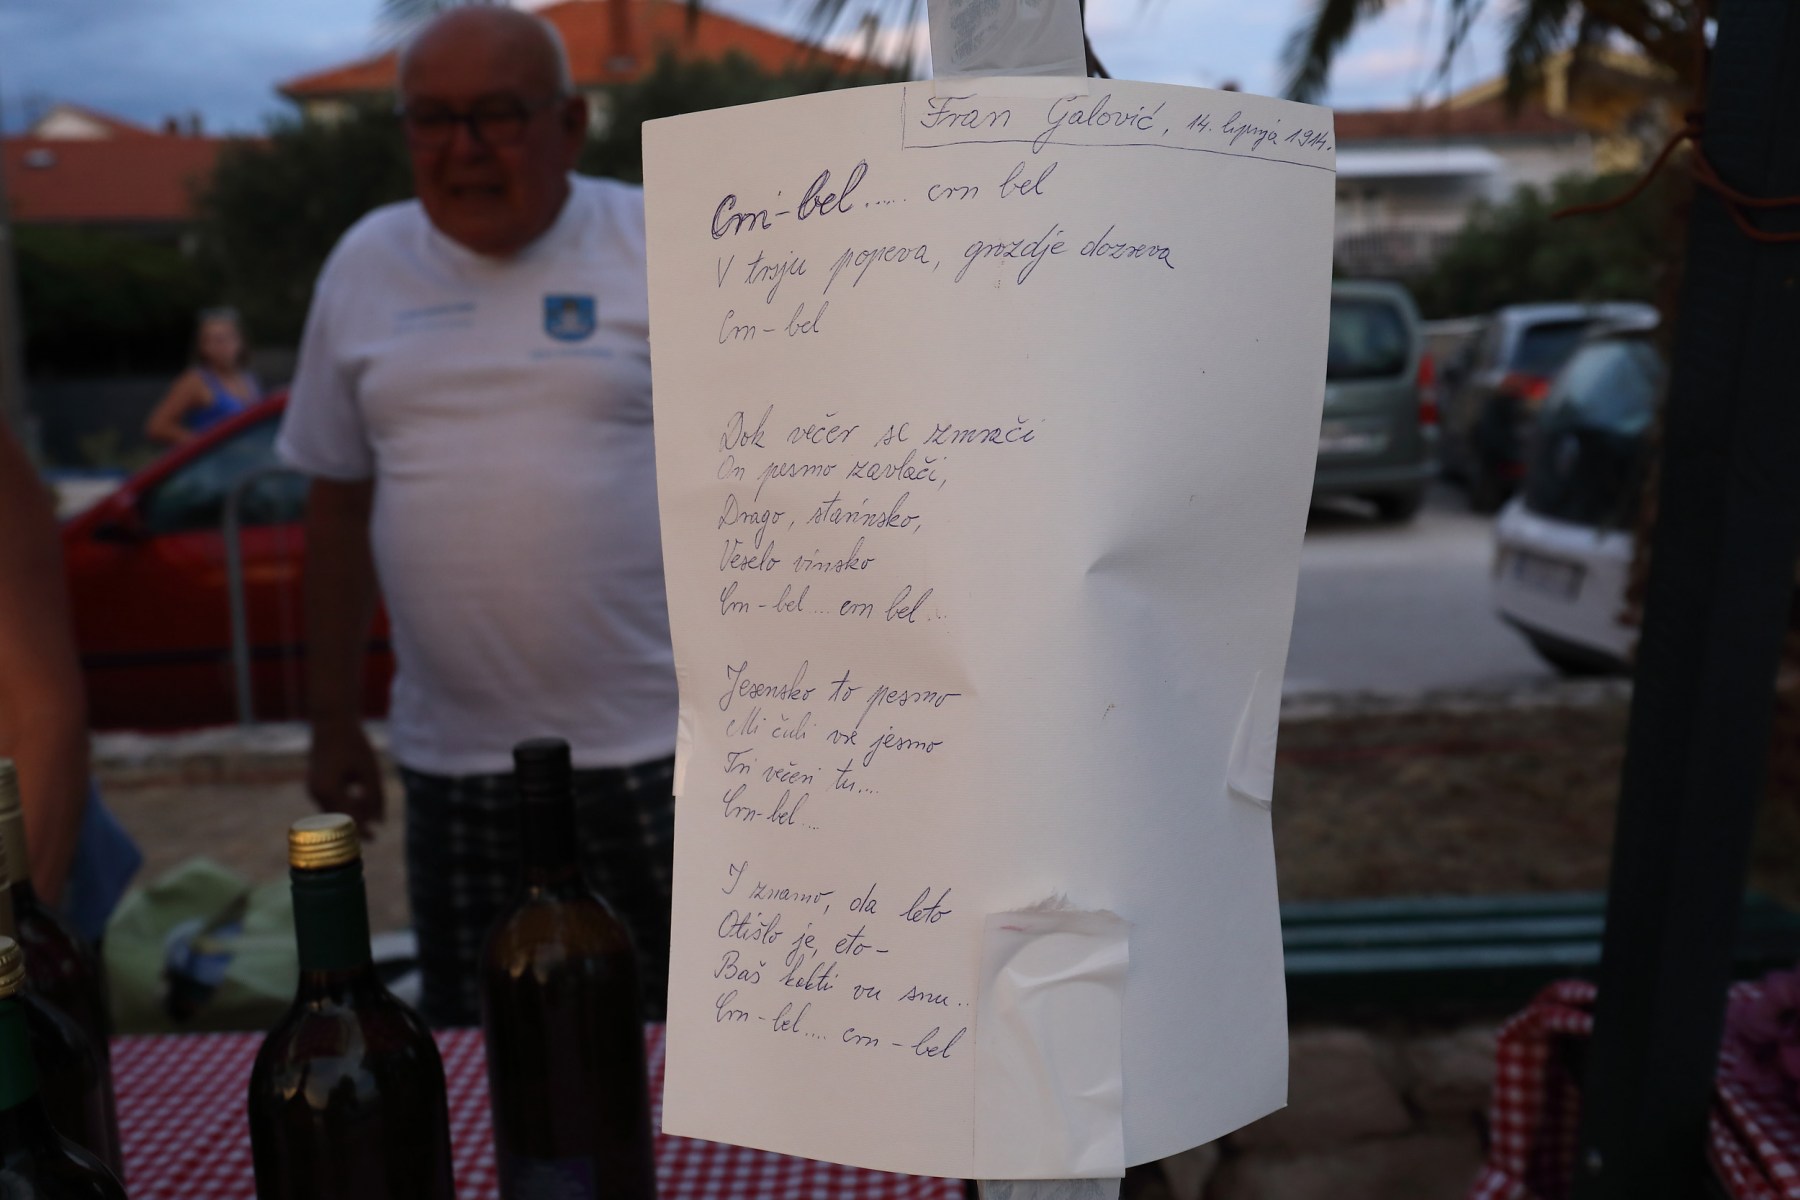 Fran Galović, 14. lipnja 1914.
Crn-bel..... crn bel
V trsju popeva, grozdje dozreva
Crn-bel
Dok večer se zmrači
On pesmo zavlači,
Drago, starinsko,
Veselo vinsko
Crn-bel.... crn bel...
Jesensko to pesmo
Mi čuli vre jesmo
Tri večeri tu....
Crn-bel....
I znamo, da leto
Otišlo je, eto-
Baš kakti vu snu..
Crn-bel.... crn-bel